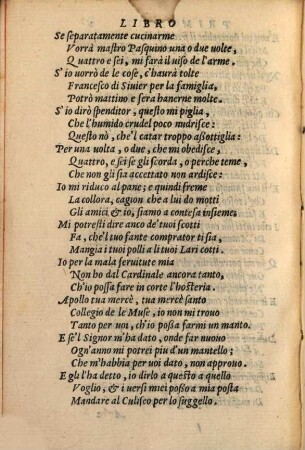 LIBRO
Se separatamente cucinarme
Vorrà mastro Pasquino una o due uolte,
Quattro e sei, mi farà il uiso de l'arme.
S'io uorrò de le cose, c'haurà tolte
Francesco di Siuier per la famiglia,
Potrò mattino e sera hauerne molte.
S'io dirò spenditor, questo mi piglia,
Che l'humido crudel poco nudrisce:
Questo nò, che'l catar troppo assottiglia:
Per una uolta, o due, che mi obedisce,
Quattro, e sei se gli scorda, o perche teme,
Che non gli sia accettato non ardisce:
Io mi riduco al pane; e quindi freme
La collora, cagion che a lui do motti
Gli amici & io, siamo a contesa insieme.
Mi potresti dire anco de'tuoi scotti
Fa, che'l tuo fante comprator ti sia,
Mangia i tuoi polli a li tuoi Lari cotti.
Io per la mala seruitute mia
Non ho dal Cardinale ancora tanto,
Ch'io possa fare in corte l'hosteria.
Apollo tua mercè, tua mercè santo
Collegio de le Muse, io non mi trouo
Tanto per uoi, ch'io possa farmi un manto.
E se'l Signor m'ha dato, onde far nuouo
Ogn'anno mi potrei piu d'un mantello;
Che m'habbia per uoi dato, non approuo.
Egli l'ha detto, io dirlo a questo a quello
Voglio, & i uersi miei posso a mia posta
Mandare al Culiseo per lo suggello.